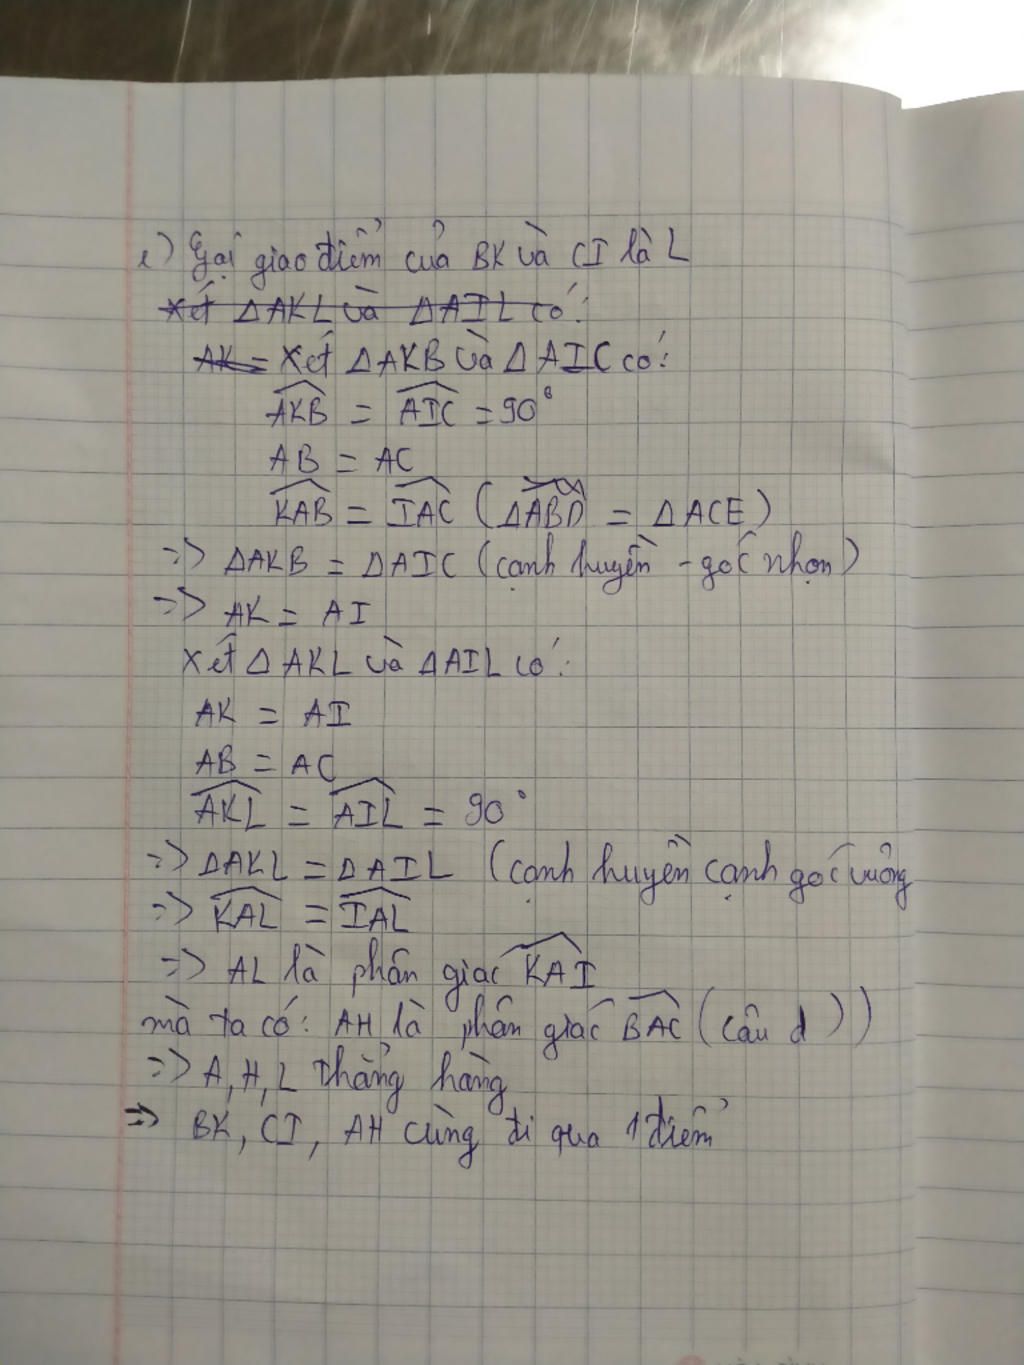 e) Gọi giao điểm của BK và CI là L
Xét ΔAKL và ΔAIL có:
AK = Xét ΔAKB và ΔAIC có:
AKB = AIC = 90°
AB = AC
KAB = IAC (ΔABD = ΔACE)
=> ΔAKB = ΔAIC (cạnh huyền - góc nhọn)
=> AK = AI
Xét ΔAKL và ΔAIL có:
AK = AI
AB = AC
AKL = AIL = 90°
=> ΔAKL = ΔAIL (cạnh huyền cạnh góc vuông
=> KAL = IAL
=> AL là phân giác KAI
mà ta có: AH là phân giác BAC (câu d))
=> A, H, L thẳng hàng
=> BK, CI, AH cùng đi qua 1 điểm